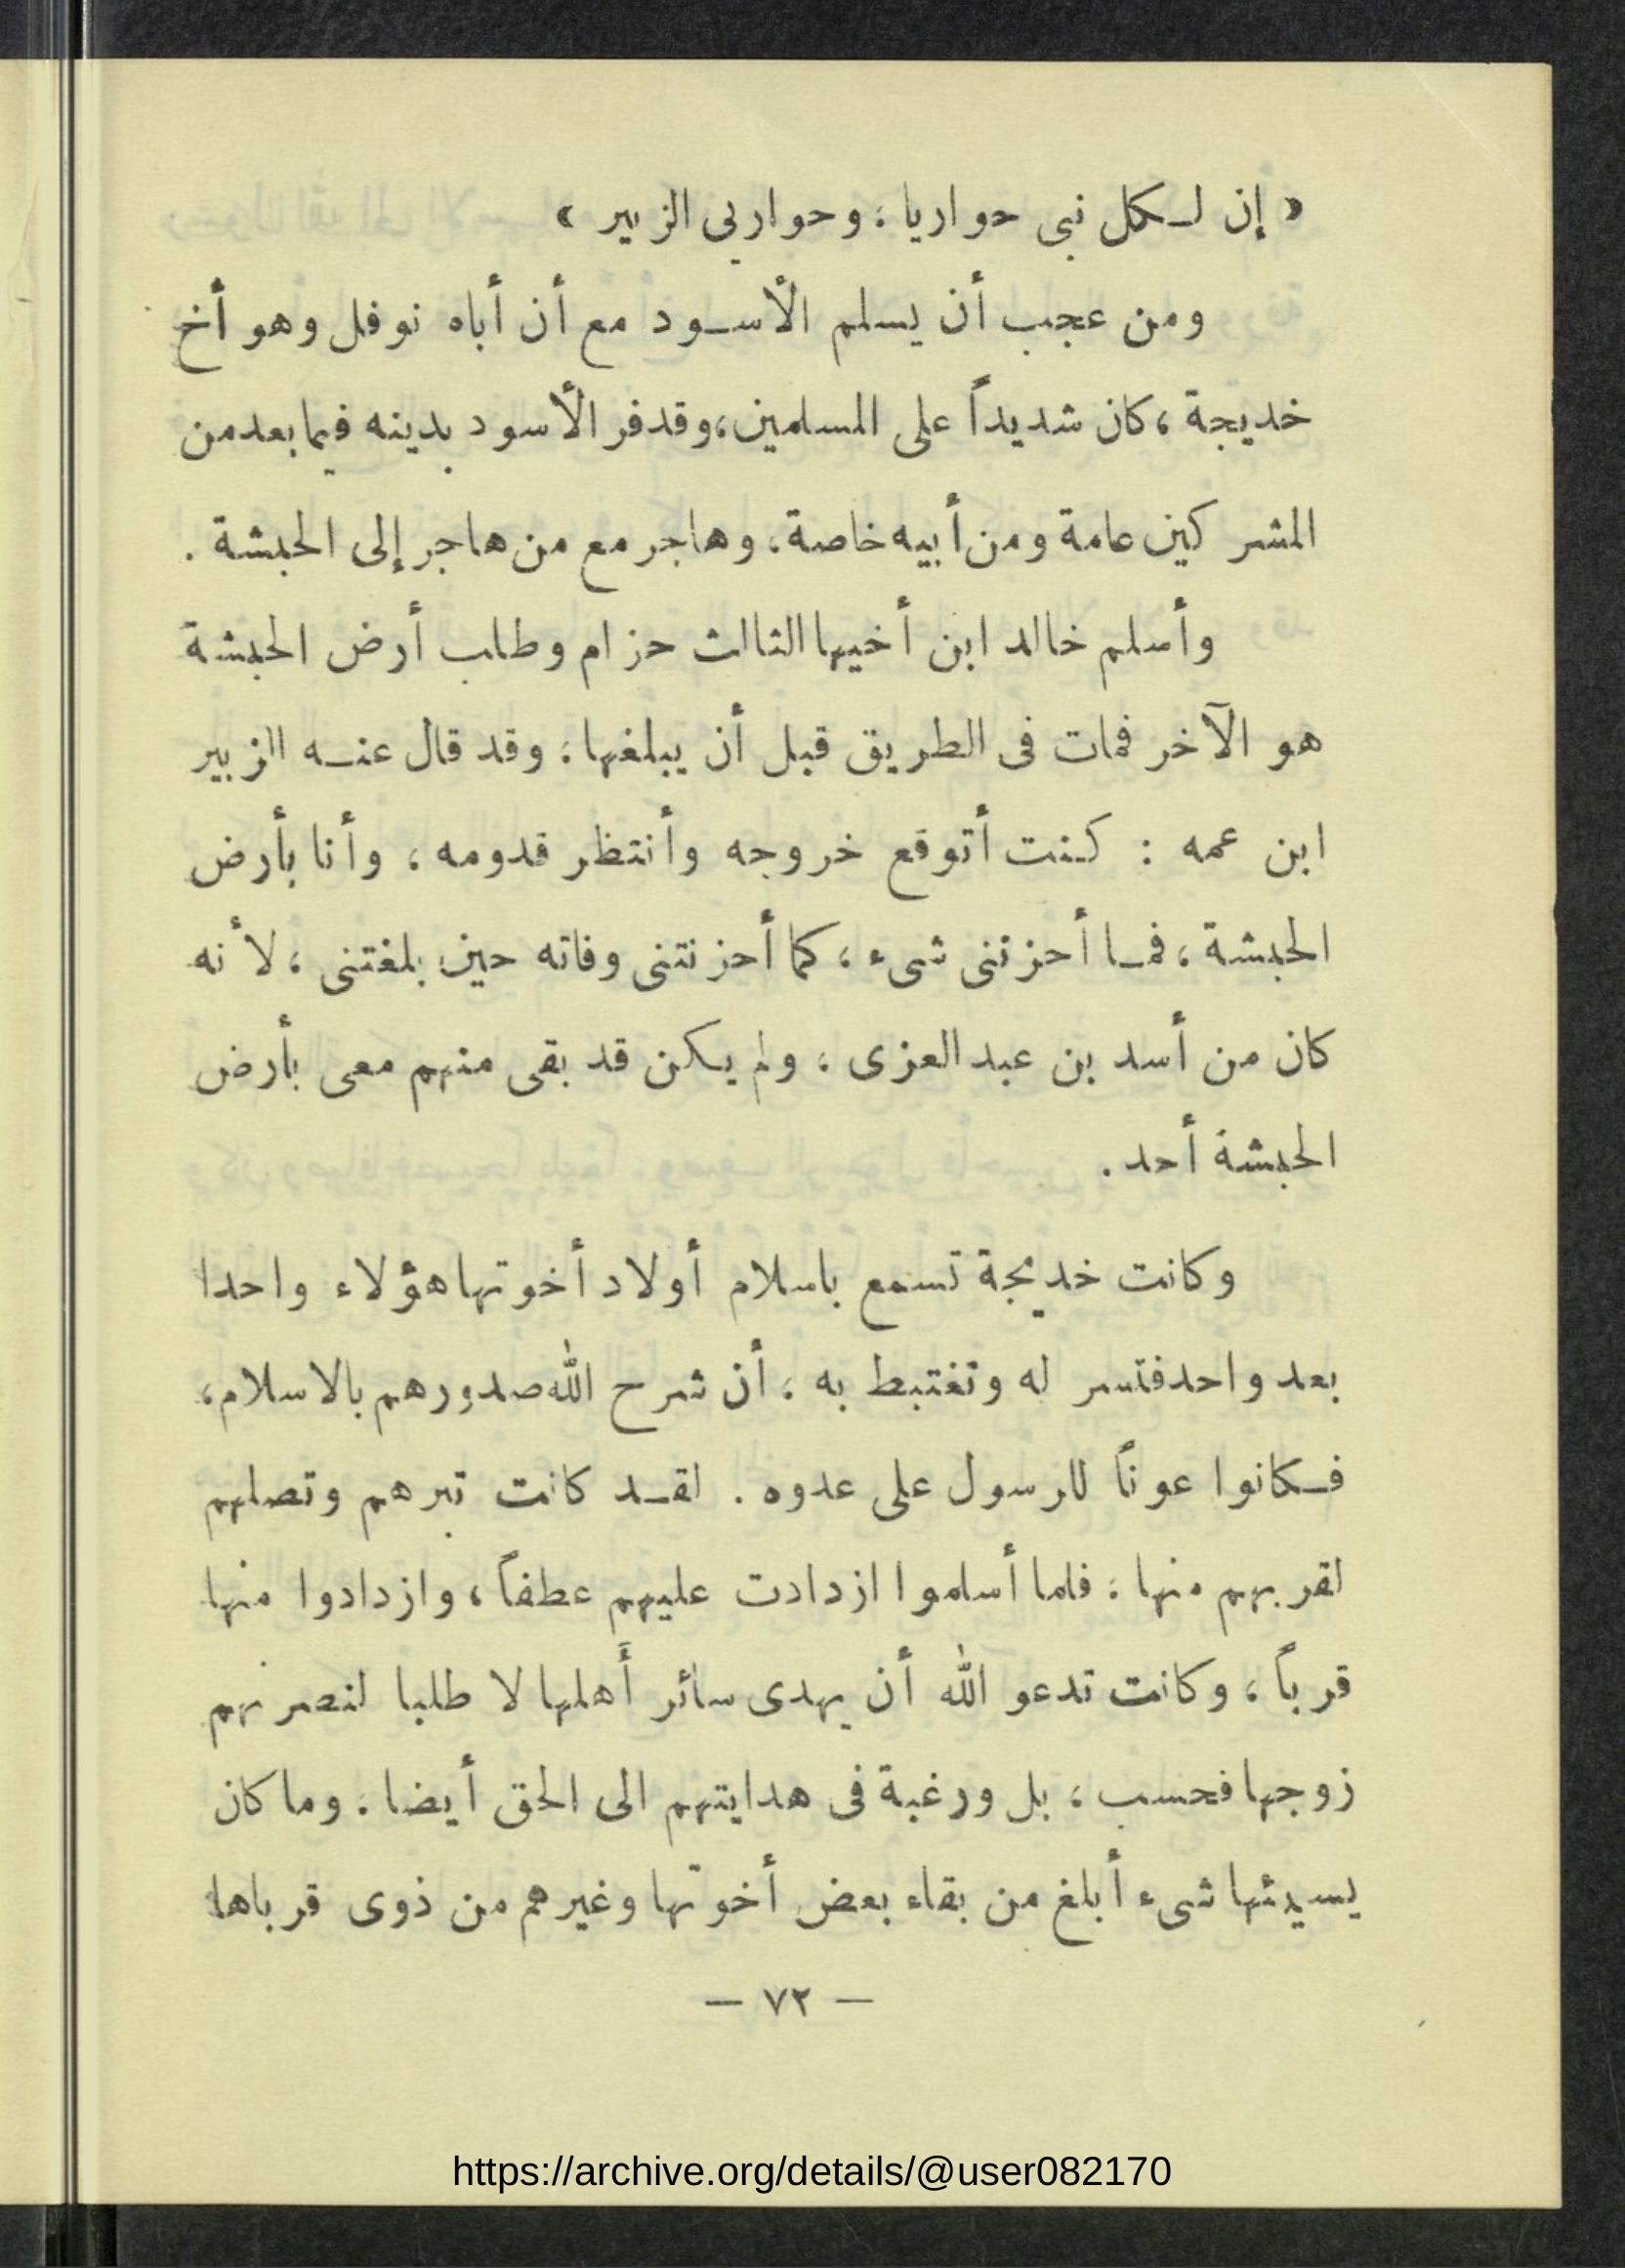 « إن لكل نبى حواريا ، وحواربى الزبير »
ومن عجب أن يسلم الأسود مع أن أباه نوفل وهو أخ
خديجة ، كان شديداً على المسلمين ، وقد فر الأسود بدينه فيما بعد من
المشركين عامة ومن أبيه خاصة ، وهاجر مع من هاجر إلى الحبشة .
وأسلم خالد ابن أخيها الثالث حزام وطلب أرض الحبشة
هو الآخر فمات فى الطريق قبل أن يبلغها ، وقد قال عنه الزبير
ابن عمه : كنت أتوقع خروجه وأنتظر قدومه ، وأنا بأرض
الحبشة ، فما أحزننى شىء ، كما أحزنتنى وفاته حين بلغتنى ، لأنه
كان من أسد بن عبد العزى ، ولم يكن قد بقى منهم معى بأرض
الحبشة أحد .
وكانت خديجة تسمع باسلام أولاد أخوتها هؤلاء واحدا
بعد واحد فتسر له وتغتبط به ، أن شرح الله صدورهم بالاسلام ،
فكانوا عوناً للرسول على عدوه . لقد كانت تبرهم وتصلهم
لقربهم منها ، فلما أسلموا ازدادت عليهم عطفاً ، وازدادوا منها
قرباً ، وكانت تدعو الله أن يهدى سائر أَهلها لا طلبا لنصرتهم
زوجها فحسب ، بل ورغبة فى هدايتهم الى الحق أيضا . وما كان
يسيئها شىء أبلغ من بقاء بعض أخوتها وغيرهم من ذوى قرباها
— ٧٢ —
https://archive.org/details/@user082170